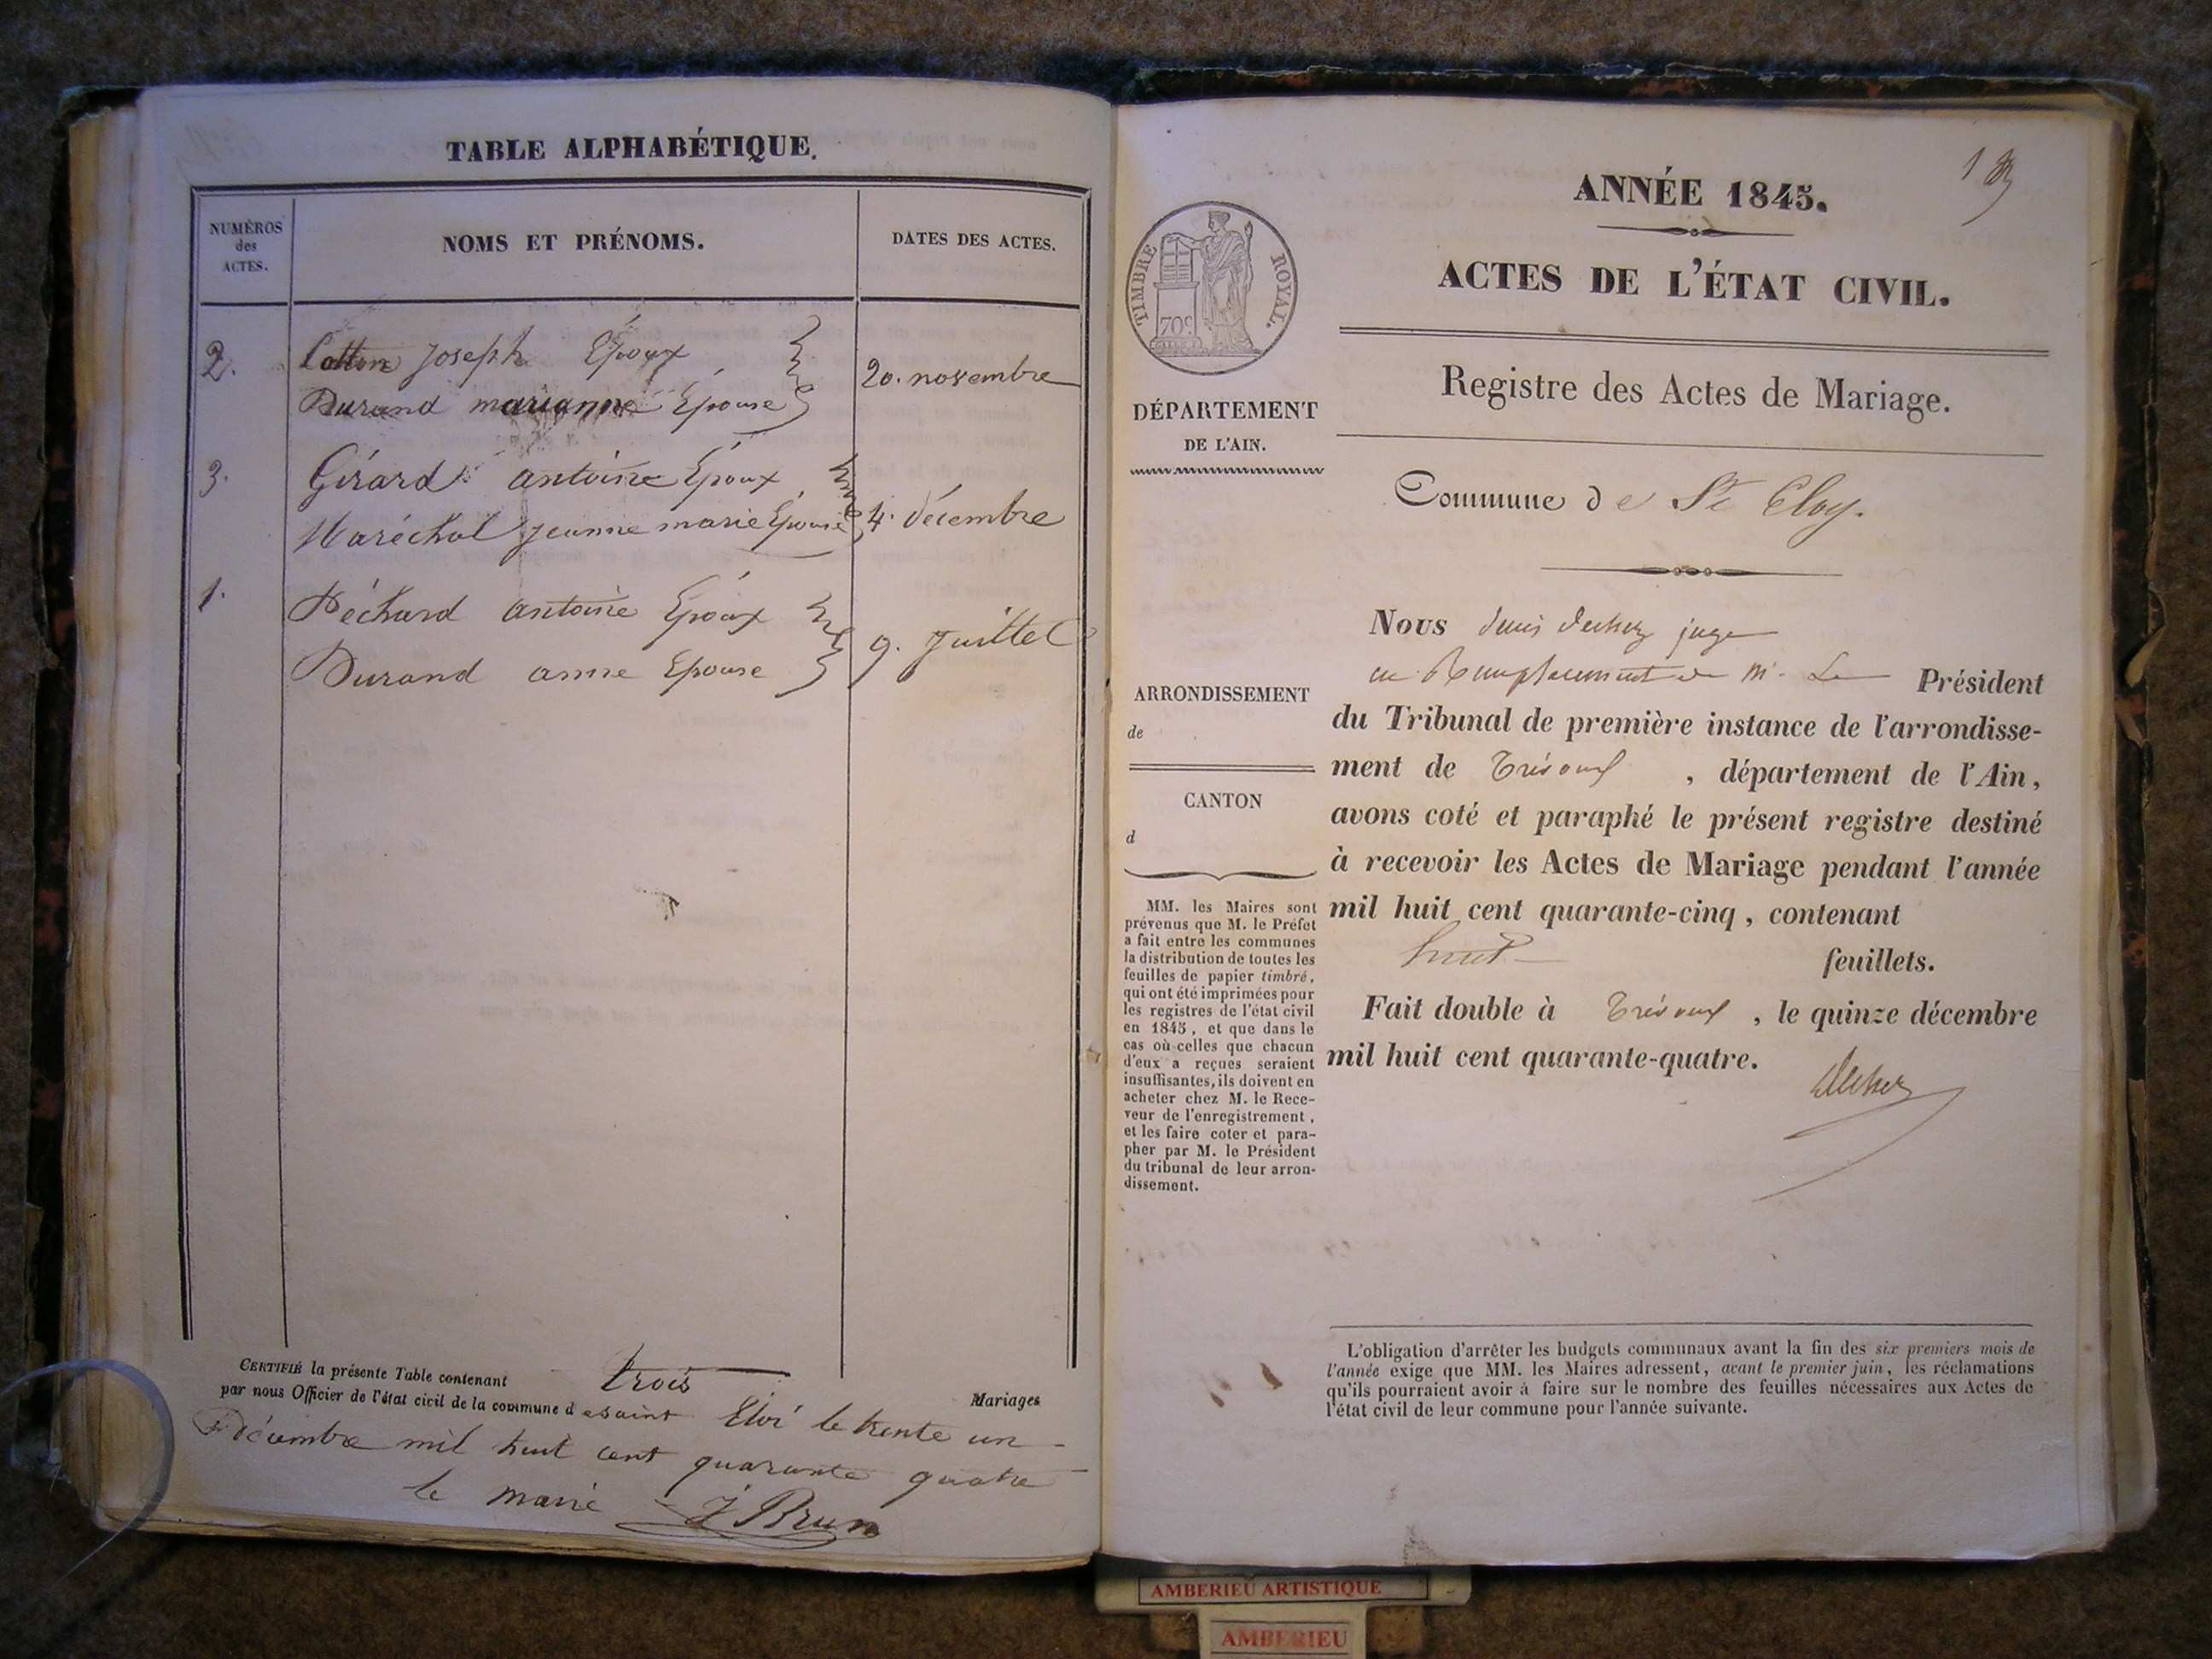 TABLE ALPHABÉTIQUE.
NUMÉROS
des
ACTES.
NOMS ET PRÉNOMS.
DATES DES ACTES.
2. Cotton Joseph Epoux
Durand marianne Epouse
20. novembre
3. Girard antoine Epoux
Maréchal Jeanne marie Epouse
4. décembre
1. Péchard antoine Epoux
Durand anne Epouse
9. Juillet
CERTIFIÉ la présente Table contenant trois Mariages
par nous Officier de l'état civil de la commune de saint Eloi le trente un
Décembre mil huit cent quarante quatre
le maire J Brun
ANNÉE 1845.
ACTES DE L'ÉTAT CIVIL.
Registre des Actes de Mariage.
Commune de St Eloy.
TIMBRE ROYAL.
70c
DÉPARTEMENT
DE L'AIN.
ARRONDISSEMENT
de
CANTON
d
MM. les Maires sont
prévenus que M. le Préfet
a fait entre les communes
la distribution de toutes les
feuilles de papier timbré,
qui ont été imprimées pour
les registres de l'état civil
en 1845, et que dans le
cas où celles que chacun
d'eux a reçues seraient
insuffisantes, ils doivent en
acheter chez M. le Rece-
veur de l'enregistrement,
et les faire coter et para-
pher par M. le Président
du tribunal de leur arron-
dissement.
Nous juge
en Remplacement de M. Le Président
du Tribunal de première instance de l'arrondisse-
ment de Trévoux, département de l'Ain,
avons coté et paraphé le présent registre destiné
à recevoir les Actes de Mariage pendant l'année
mil huit cent quarante-cinq, contenant
huit feuillets.
Fait double à Trévoux, le quinze décembre
mil huit cent quarante-quatre.
L'obligation d'arrêter les budgets communaux avant la fin des six premiers mois de
l'année exige que MM. les Maires adressent, avant le premier juin, les réclamations
qu'ils pourraient avoir à faire sur le nombre des feuilles nécessaires aux Actes de
l'état civil de leur commune pour l'année suivante.
AMBERIEU ARTISTIQUE
AMBERIEU